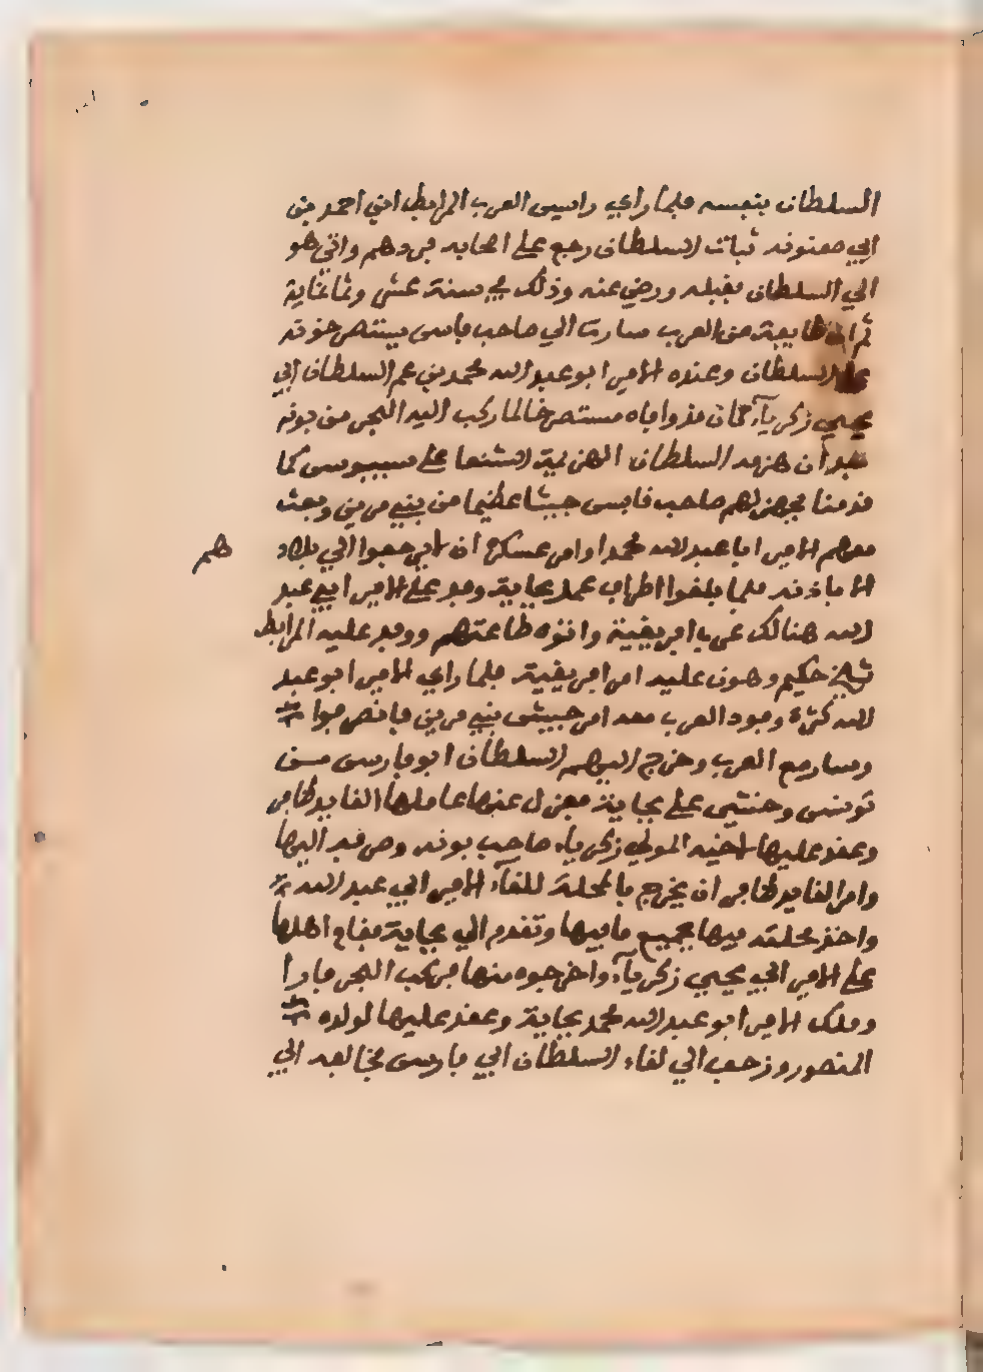 السلطان بنفسه فلما راي راسى العرب المرابط ابن احمد بن
ابي صعنونه ثبات السلطان رجع على اصحابه فردهم واتى هو
الي السلطان فقبله ورضي عنه وذلك في سنة عشر وثمانماية
ثم ان طايفة من العرب سارت الي صاحب فاس يستصرخونه
على السلطان وعنده الامير ابو عبد الله محمد بن عم السلطان ابي
يحيى زكرياء كان قدم اياه مستصرخا لما ركب اليه البحر من بونه
بعد ان هزمه السلطان الهزيمة الشنعا على سيبوس كما
قدمنا فجهز لهم صاحب فاس جيشا عظيما من بني مرين وبعث
معهم الامير ابا عبد الله محمدا وامر عسكره ان ابى جعوا الي بلاد
الا باذنه فلما بلغوا اطراب عمل بجاية وفد على الامير ابي عبد
الله هنالك عرب افريقية واتوه طاعتهم ووفد عليه المرابط
شيخ حكيم وهون عليه امر افريقية فلما راي الامير ابو عبد
الله كثرة وفود العرب معه امر جيش بني مرين فانصرفوا
وسار مع العرب وخرج اليهم السلطان ابو فارس من
تونس وخشي على بجاية فعزل عنها عاملها القايد ظافر
وعقد عليها لاخيه المولي زكرياء صاحب بونه وصرفه اليها
وامر القايد ظافر ان يخرج بالمحلة للقاء الامير ابي عبد الله
واخذ محلته فيها بجميع ما فيها وتقدم الي بجاية فقام اهلها
على الامير ابي يحيى زكرياء واخرجوه منها فركب البحر فارا
وملك الامير ابو عبد الله محمد بجاية وعقد عليها لولده
المنصور وزحف الي لقاء السلطان ابي فارس فخالفه الي
هم